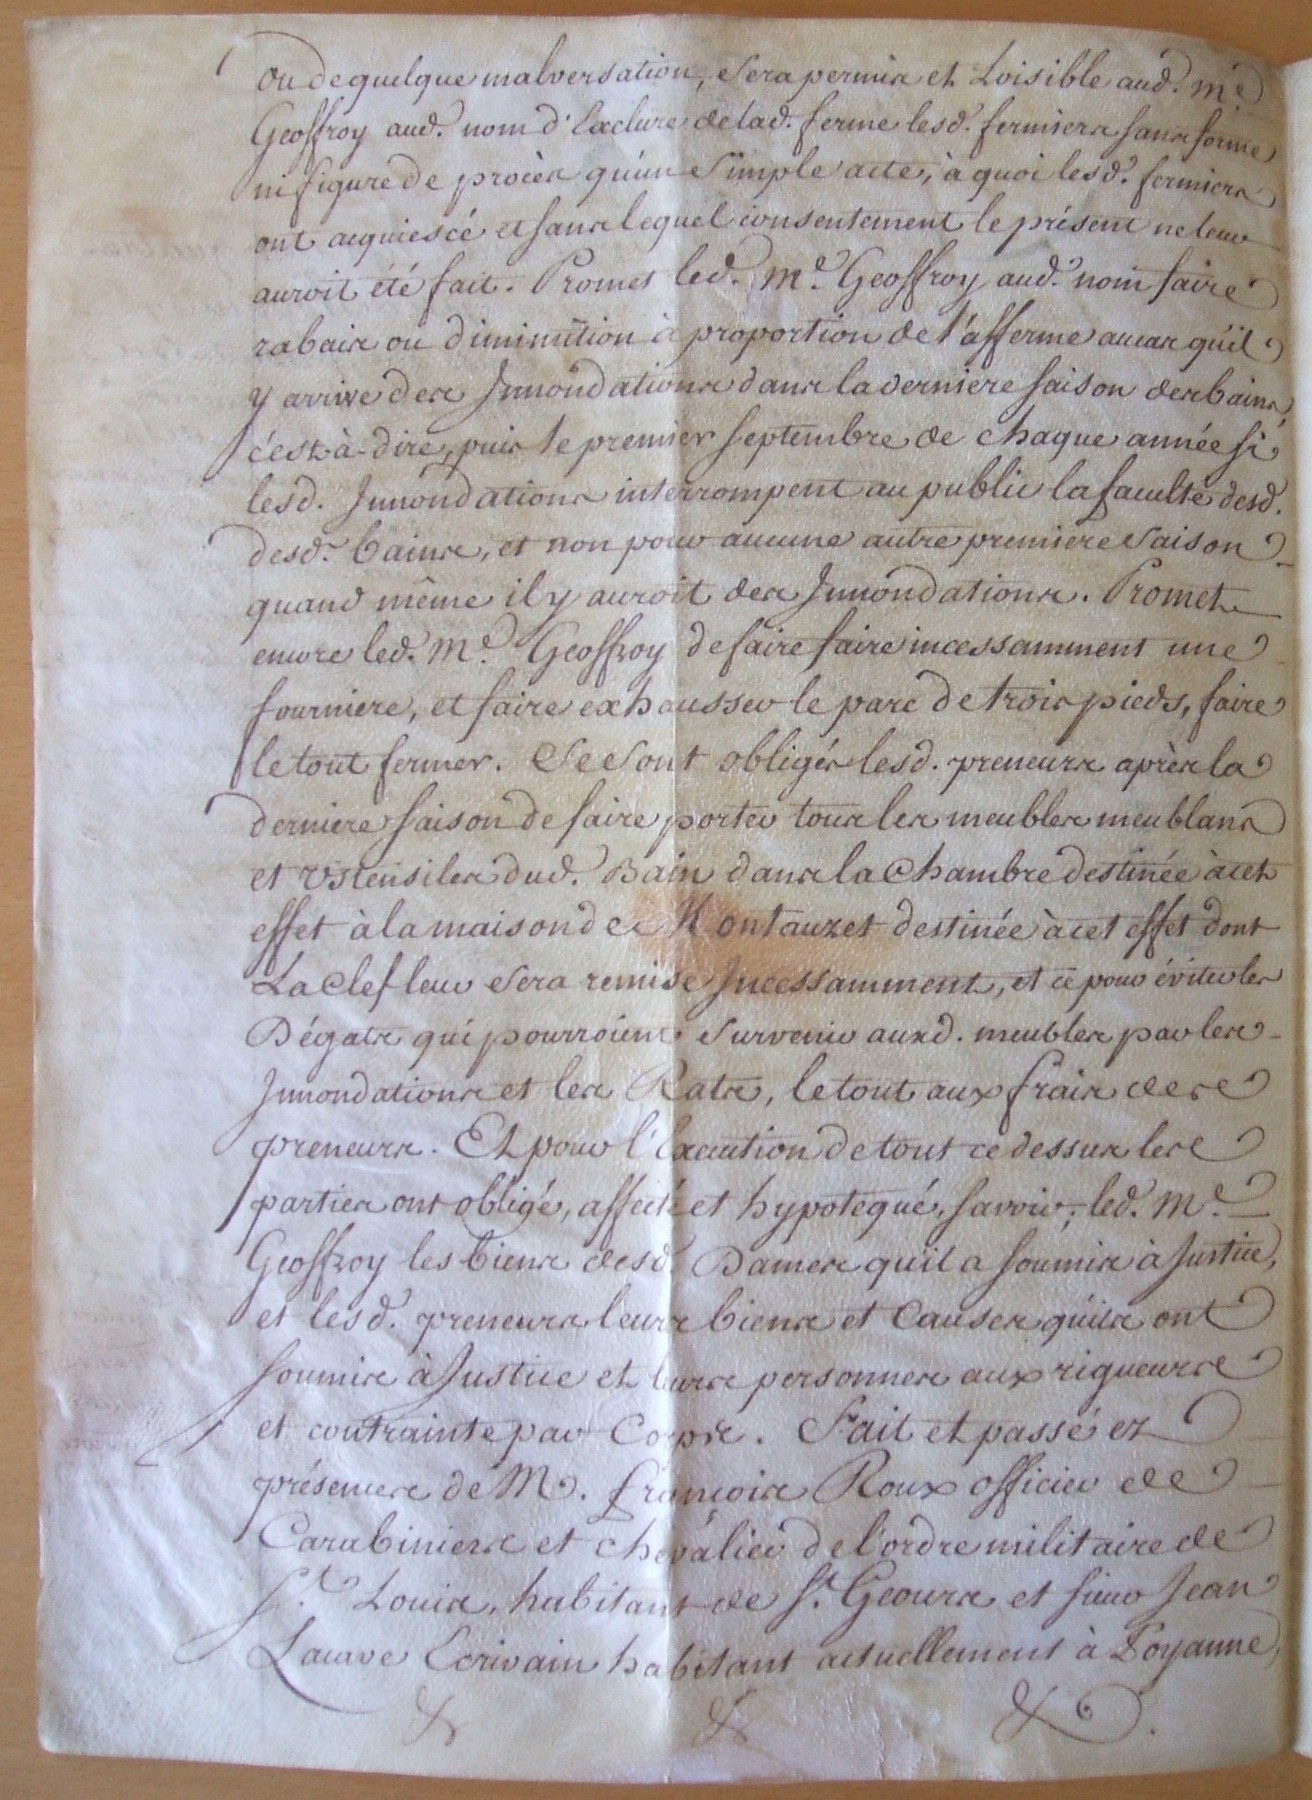 ou de quelque malversation, sera permis et Loisible aud. Me.
Geoffroy aud. nom d'Exclure de lad. ferme lesd. fermiers sans forme
ni figure de procès qu'un simple acte, à quoi lesd. fermiers
ont acquiescé et sans lequel consentement le présent ne leur
auroit été fait. Promet led. Me. Geoffroy aud. nom faire
rabais ou diminution à proportion de l'afferme au cas qu'il
y arrive des Innondations dans la derniere saison des bains
c'est-à-dire, puis le premier septembre de chaque année si
lesd. Innondations interrompent au public la faculté desd.
desd. bains, et non pour aucune autre premiere saison
quand même il y auroit des Innondations. Promet
encore led. Me. Geoffroy de faire faire incessamment une
fourniere, et faire exhausser le parc de trois pieds, faire
le tout fermer. Se sont obligés lesd. preneurs après la
derniere saison de faire porter tous les meubles meublans
et Ustensiles dud. Bain dans la Chambre destinée à cet
effet à la maison de Montauzet destinée à cet effet dont
La Clef leur sera remise Incessamment, et ce pour éviter les
Dégats qui pourroient survenir auxd. meubles par les
Innondations et les Rats, le tout aux frais des
preneurs. Et pour l'Exécution de tout ce dessus les
parties ont obligé, affecté et hypotequé, savoir; led. Me.
Geoffroy les biens desd. Dames qu'il a soumis à Justice,
et lesd. preneurs leurs biens et Causes qu'ils ont
soumis à Justice et leurs personnes aux rigueurs
et contrainte par Corps. Fait et passé ez
présences de M. François Roux officier de
Carabiniers et chevalier de l'ordre militaire de
St. Louis, habitant de St. Geours et sieur Jean
Lacave Ecrivain habitant actuellement à Poyanne
& & &.